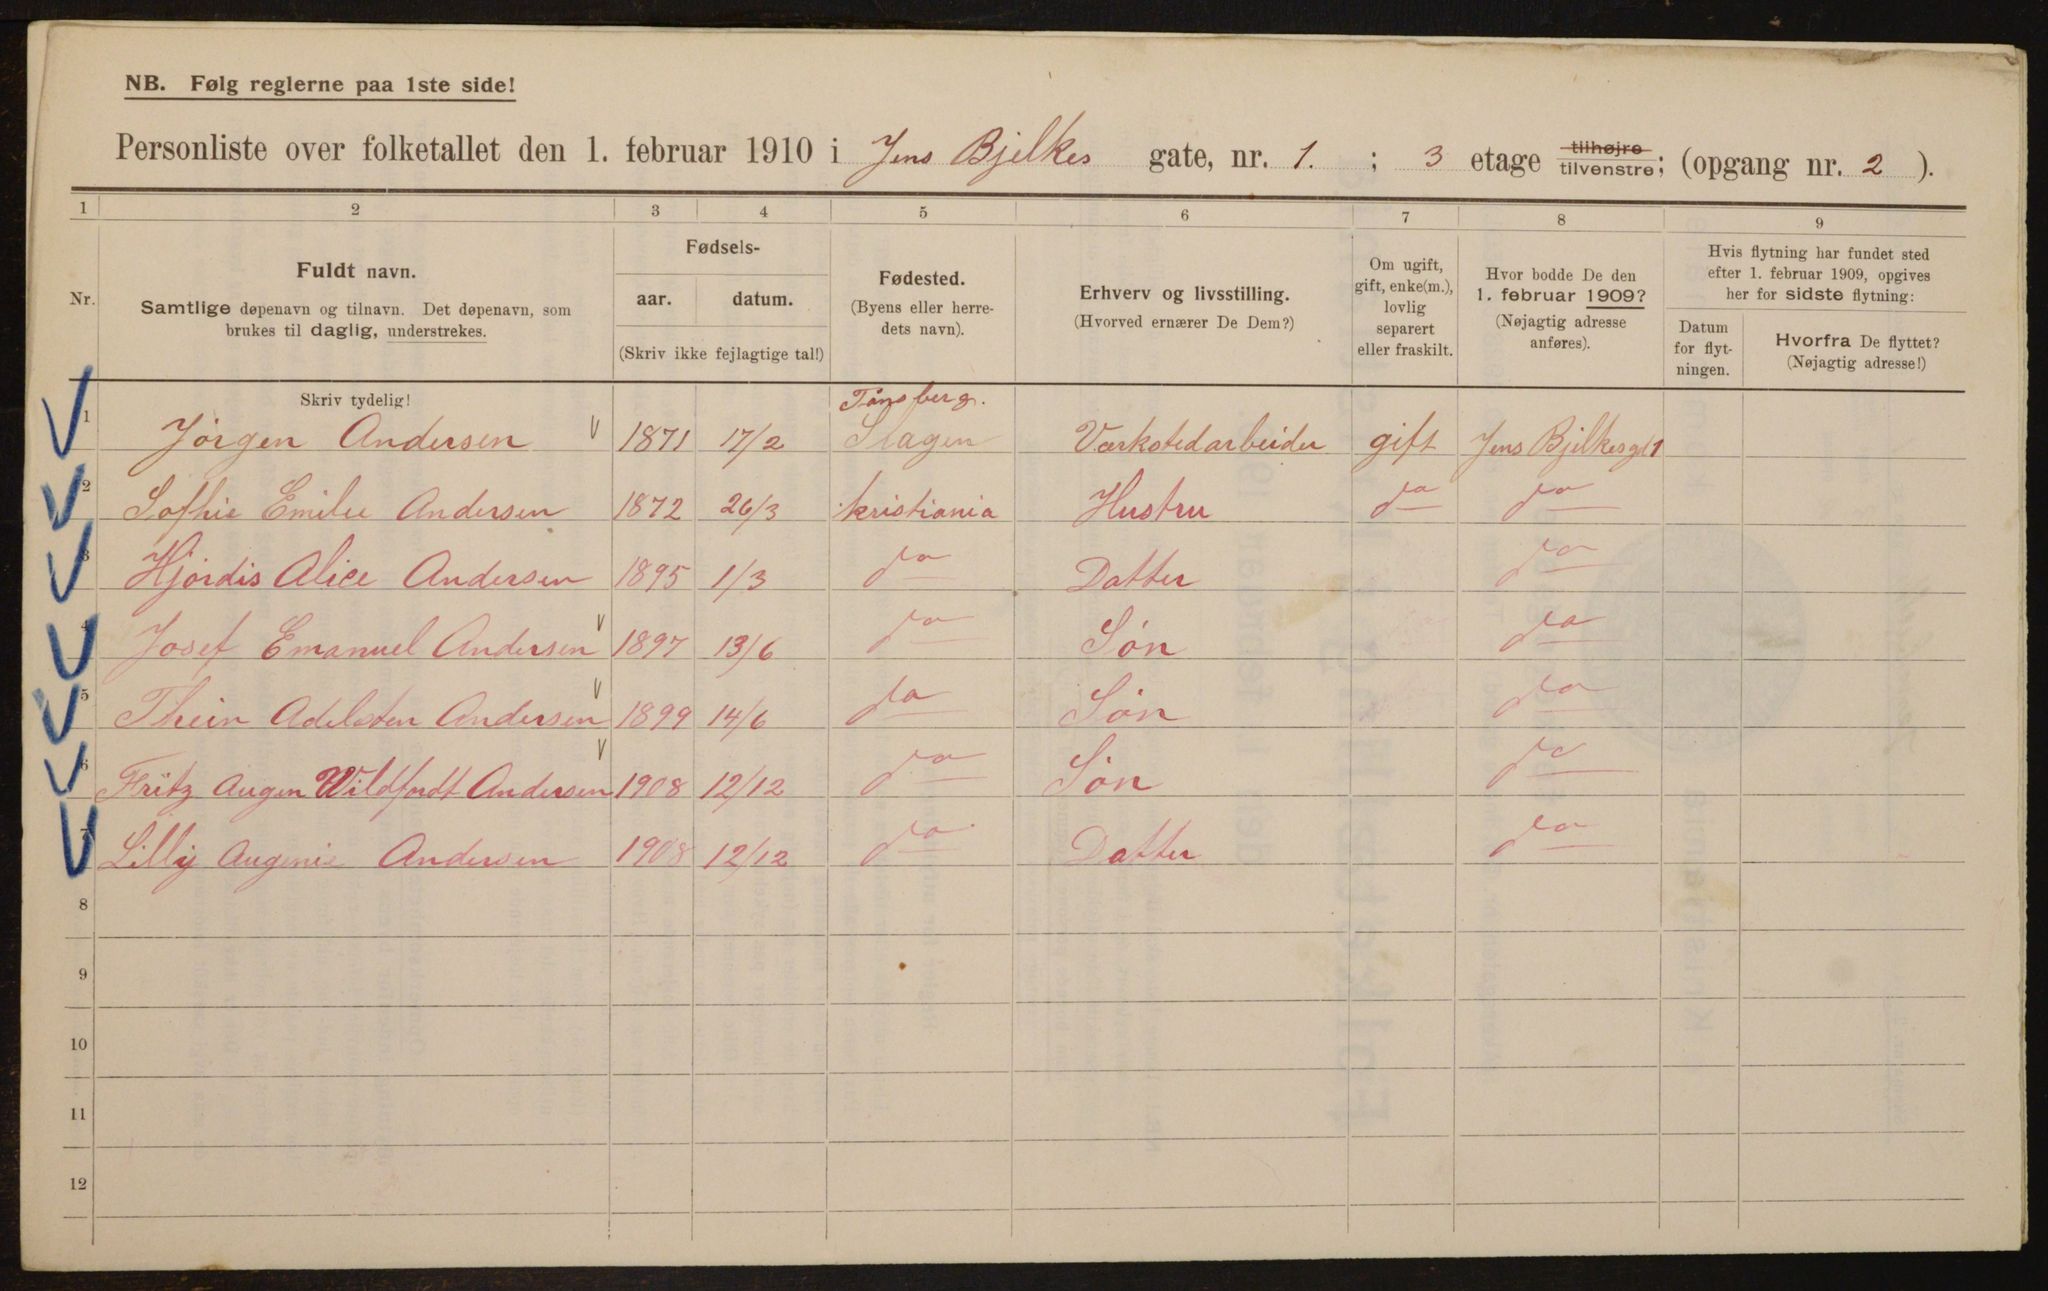 NB. Følg reglerne paa 1ste side!
Personliste over folketallet den 1. februar 1910 i Jens Bjelkes gate, nr. 1. ; 3 etage tilhøjre tilvenstre; (opgang nr. 2 ).
1 2 3 4 5 6 7 8 9
Nr.
Fuldt navn.
Samtlige døpenavn og tilnavn. Det døpenavn, som
brukes til daglig, understrekes.
Fødsels-
aar. datum.
(Skriv ikke fejlagtige tal!)
Fødested.
(Byens eller herre-
dets navn).
Erhverv og livsstilling.
(Hvorved ernærer De Dem?)
Om ugift,
gift, enke(m.),
lovlig
separert
eller fraskilt.
Hvor bodde De den
1. februar 1909?
(Nøjagtig adresse
anføres).
Hvis flytning har fundet sted
efter 1. februar 1909, opgives
her for sidste flytning:
Datum
for flyt-
ningen.
Hvorfra De flyttet?
(Nøjagtig adresse!)
Skriv tydelig!
Tønsberg.
1 Jørgen Andersen 1871 17/2 Slagen Værkstedarbeider gift Jens Bjelkesgd 1
2 Sofhie Emilie Andersen 1872 26/3 Kristiania Hustru do do
3 Hjørdis Alice Andersen 1895 1/3 do Datter do
4 Josef Emanuel Andersen 1897 13/6 do Søn do
5 Thein Adelsten Andersen 1899 14/6 do Søn do
6 Fritz Augen Wildfordt Andersen 1908 12/12 do Søn do
7 Lilly Augenie Andersen 1908 12/12 do Datter do
8
9
10
11
12